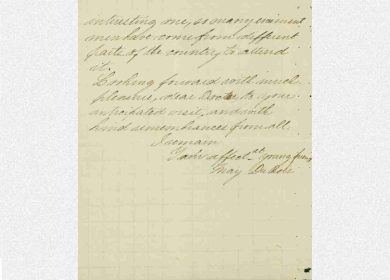 interesting one, so many eminent
men have come from different
parts of the country to attend
it.
Looking forward with much
pleasure, dear Doctor to your
anticipated visit, and with
kind remembrances from all.
I remain
Your affect. ate young friend
May